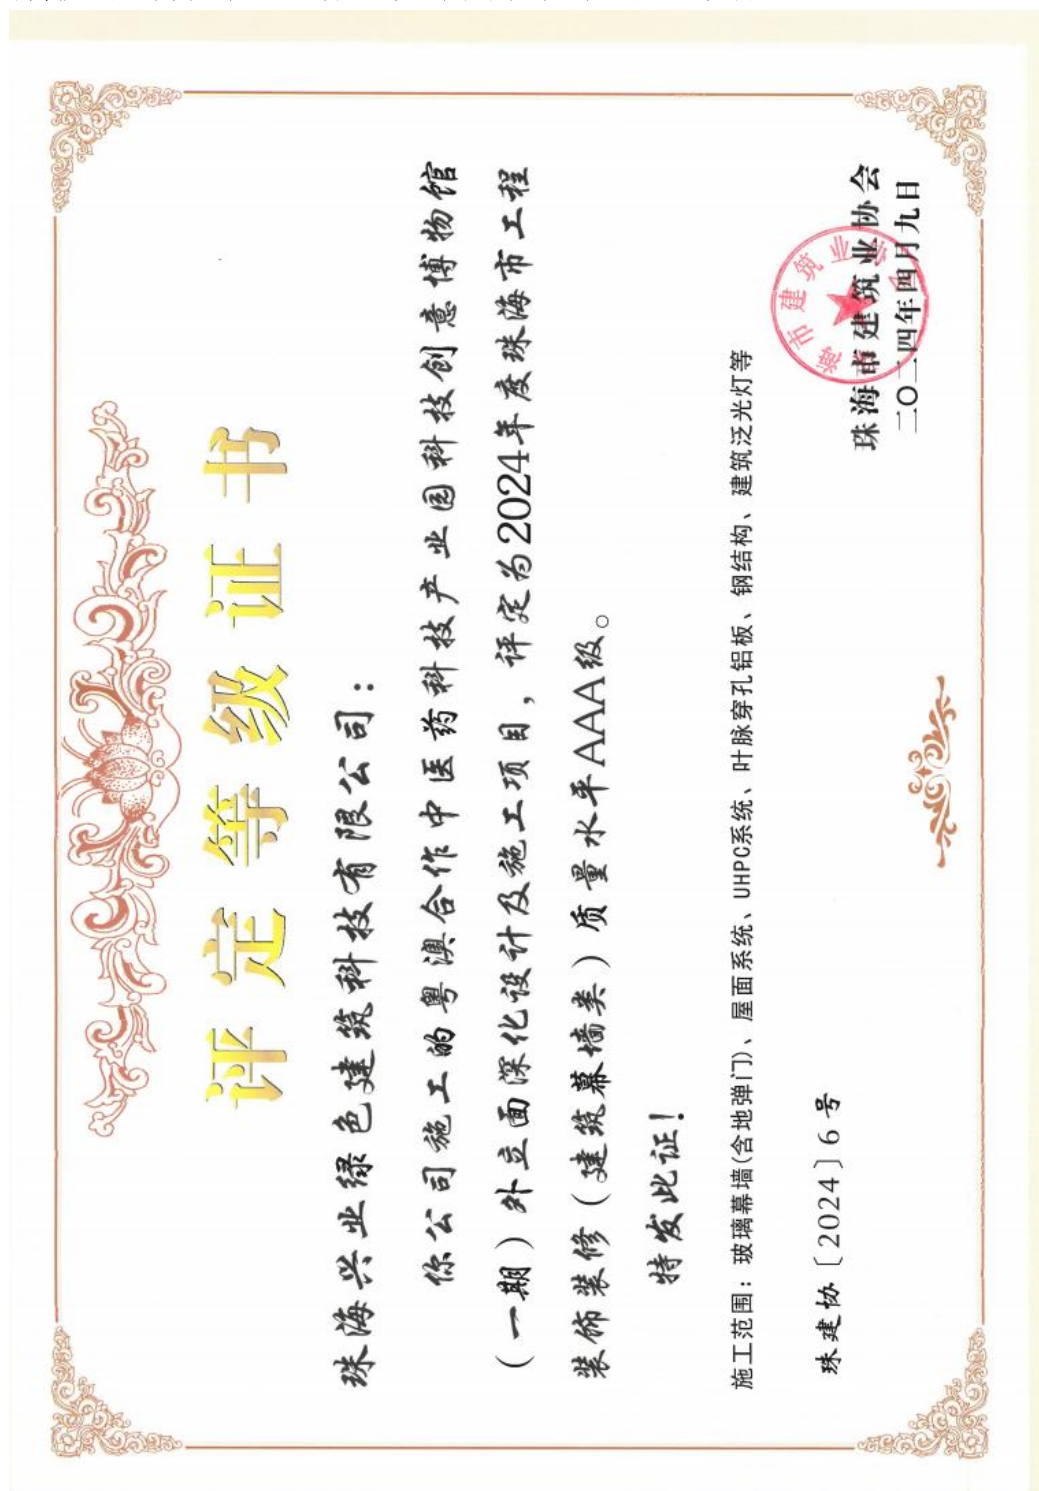 评定等级证书
珠海兴业绿色建筑科技有限公司：
你公司施工的粤澳合作中医药科技产业园科技创意博物馆
（一期）外立面深化设计及施工项目，评定为2024年度珠海市工程
装饰装修（建筑幕墙类）质量水平AAA级。
特发此证！
施工范围：玻璃幕墙(含地弹门)、屋面系统、UHPC系统、叶脉穿孔铝板、钢结构、建筑泛光灯等
珠建协〔2024〕6号
珠海市建筑业协会
二〇二四年四月九日